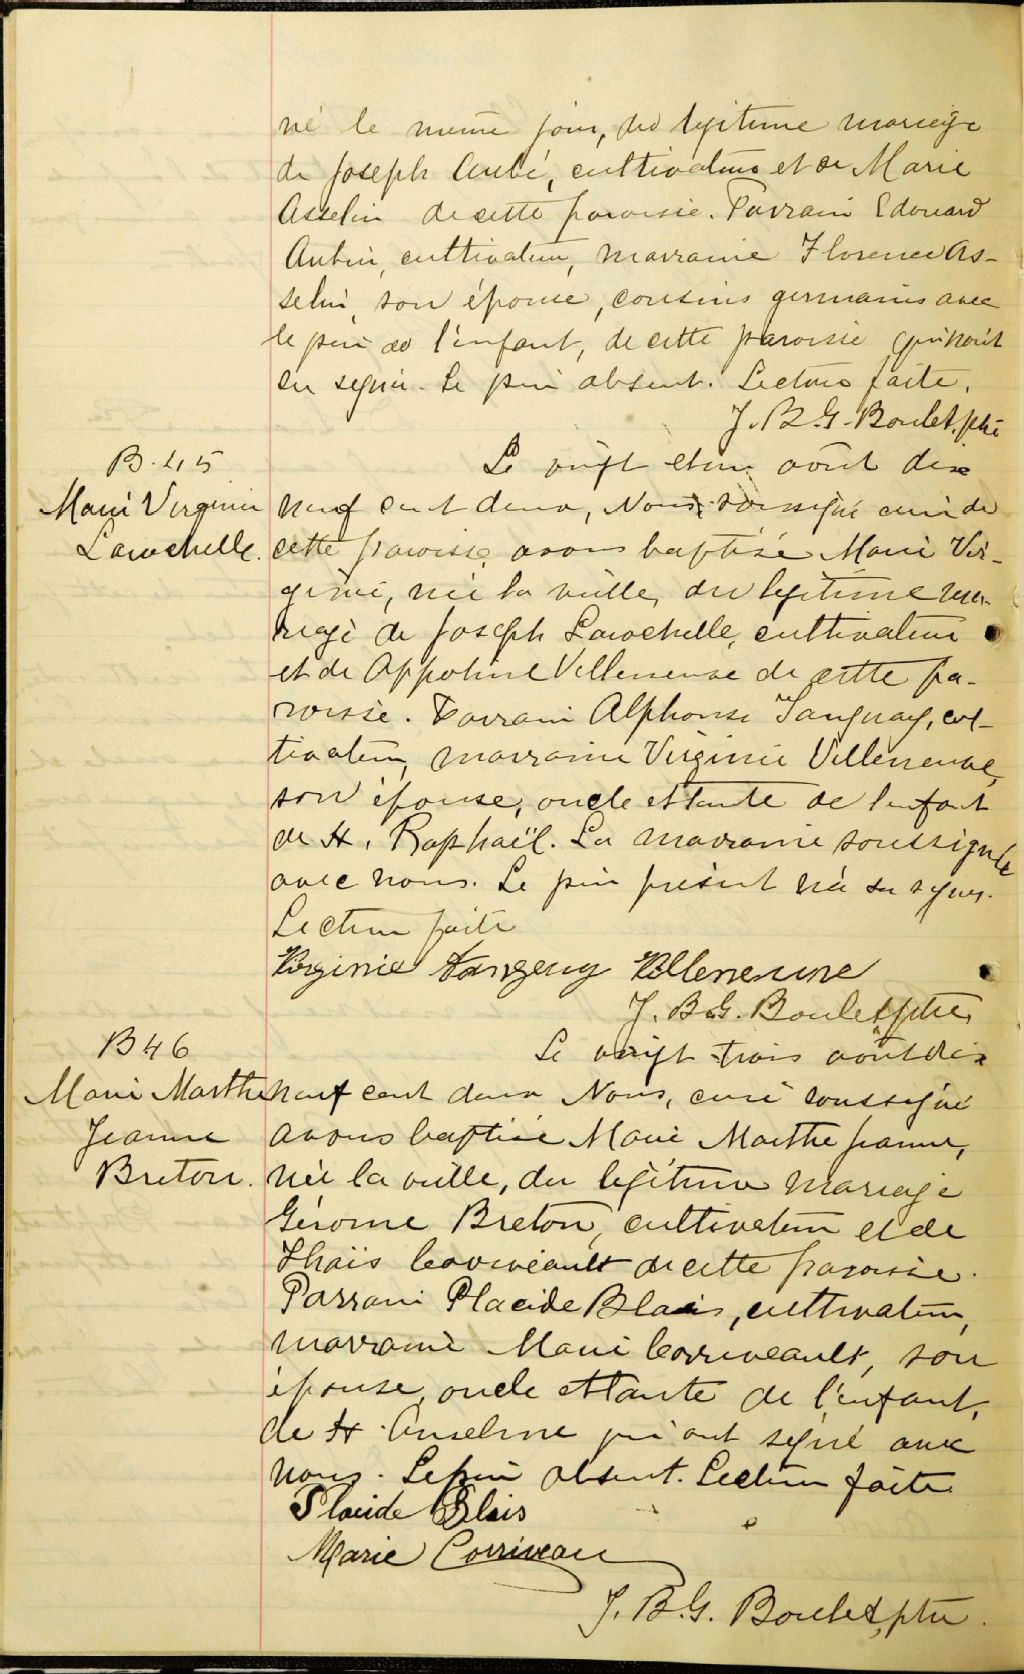 né le même jour, du légitime mariage
de Joseph Aubé, cultivateur et de Marie
Asselin de cette paroisse. Parrain Edouard
Aubin, cultivateur, marraine Florence As-
selin, son épouse, cousins germains avec
le père de l'enfant, de cette paroisse qui n'ont
su signer. Le père absent. Lecture faite.
J. B. G. Boulet, ptre
B. 45
Marie Virginie
Larochelle.
Le vingt et un août dix
neuf cent deux, Nous, soussigné curé de
cette paroisse, avons baptisé Marie Vir-
ginie, née la veille, du légitime ma-
riage de Joseph Larochelle, cultivateur
et de Appoline Villeneuve de cette pa-
roisse. Parrain Alphonse Tanguay, cul-
tivateur, marraine Virginie Villeneuve,
son épouse, oncle et tante de l'enfant
de St. Raphaël. La marraine soussignée
avec nous. Le père présent n'a su signer.
Lecture faite
Virginie Tangeuy Villeneuve
J. B. G. Boulet, ptre
B 46
Marie Marthe
Jeanne
Breton.
Le vingt trois août dix
neuf cent deux Nous, curé soussigné
avons baptisé Marie Marthe Jeanne,
née la veille, du légitime mariage
Gérome Breton, cultivateur et de
Thaïs Corriveault de cette paroisse.
Parrain Placide Blais, cultivateur,
marraine Marie Corriveault, son
épouse, oncle et tante de l'enfant,
de St. Anselme qui ont signé avec
nous. Le père absent. Lecture faite
Placide Blais
Marie Corriveau
J. B. G. Boulet, ptre.